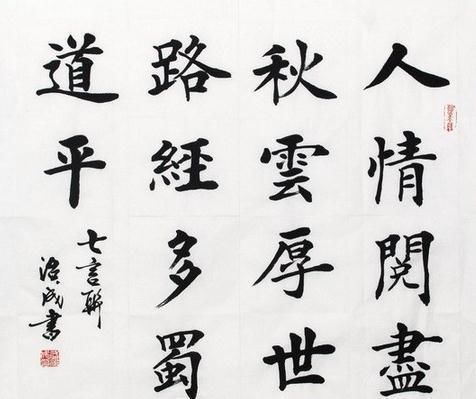 人情閱盡
秋雲厚世
路經多蜀
道平
七言聯
成書